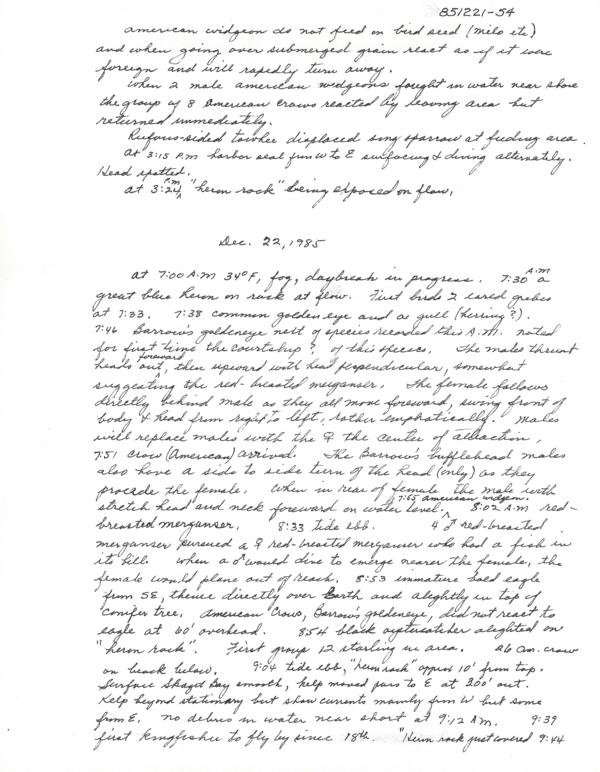 851221-54
American widgeon do not feed on bird seed (milo etc)
and when going over submerged grain react as if it were
foreign and will rapidly turn away.
When 2 male american widgeons fought in water near shore
the group of 8 American crows reacted by leaving area but
returned immediately.
Rufous-sided towhee displaced song sparrow at feeding area.
At 3:15 P.M. harbor seal from W to E surfacing & diving alternately.
Head spotted.
At 3:24 P.M. "heron rock" being exposed on flow.
Dec. 22, 1985
At 7:00 A.M 34°F, fog, daybreak in progress. 7:30 A.M a
great blue heron on rock at flow. First birds 2 eared grebes
at 7:33. 7:38 common goldeneye and a gull (herring?).
7:46 Barrow's goldeneye next of species recorded this A.M. noted
for first time the courtship ? of this species. The males thrust
heads forward out, then upward with head perpendicular, somewhat
suggesting the red-breasted merganser. The female follows
directly behind male as they all move foreward, swing front of
body & head from right to left, rather emphatically. Males
will replace males with the ♀ the center of attraction,
7:51 crow (American) arrived. The Barrow's bufflehead males
also have a side to side turn of the head (only) as they
procede the female. When in rear of female the male with
stretch head and neck foreward on water level. 7:55 American widgeon. 8:02 A.M red-
breasted merganser. 8:33 tide ebb. 4 ♂ red-breasted
merganser pursued a ♀ red-breasted merganser who had a fish in
its bill. When a ♂ would dive to emerge nearer the female, the
female would plane out of reach. 8:53 immature bald eagle
from SE, thence directly over Earth and alightly in top of
conifer tree. American Crows, Barrow's goldeneye, did not react to
eagle at 60' overhead. 8:54 black oystercatcher alighted on
"heron rock". First group 12 starling in area. 26 am. crow
on beach below. 9:04 tide ebb, "heron rock" approx 10' from top.
Surface Skagit Bay smooth, kelp moved pass to E at 200' out.
Kelp beyond stationary but show currents mainly from W but some
from E. No debris in water near short at 9:12 A.M. 9:39
first kingfisher to fly by since 18th. "Heron rock just covered 9:44